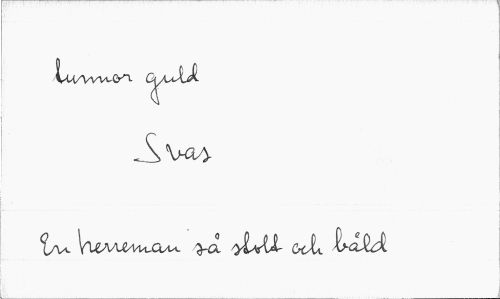 tunnor guld
Svas
En herreman så stolt och båld